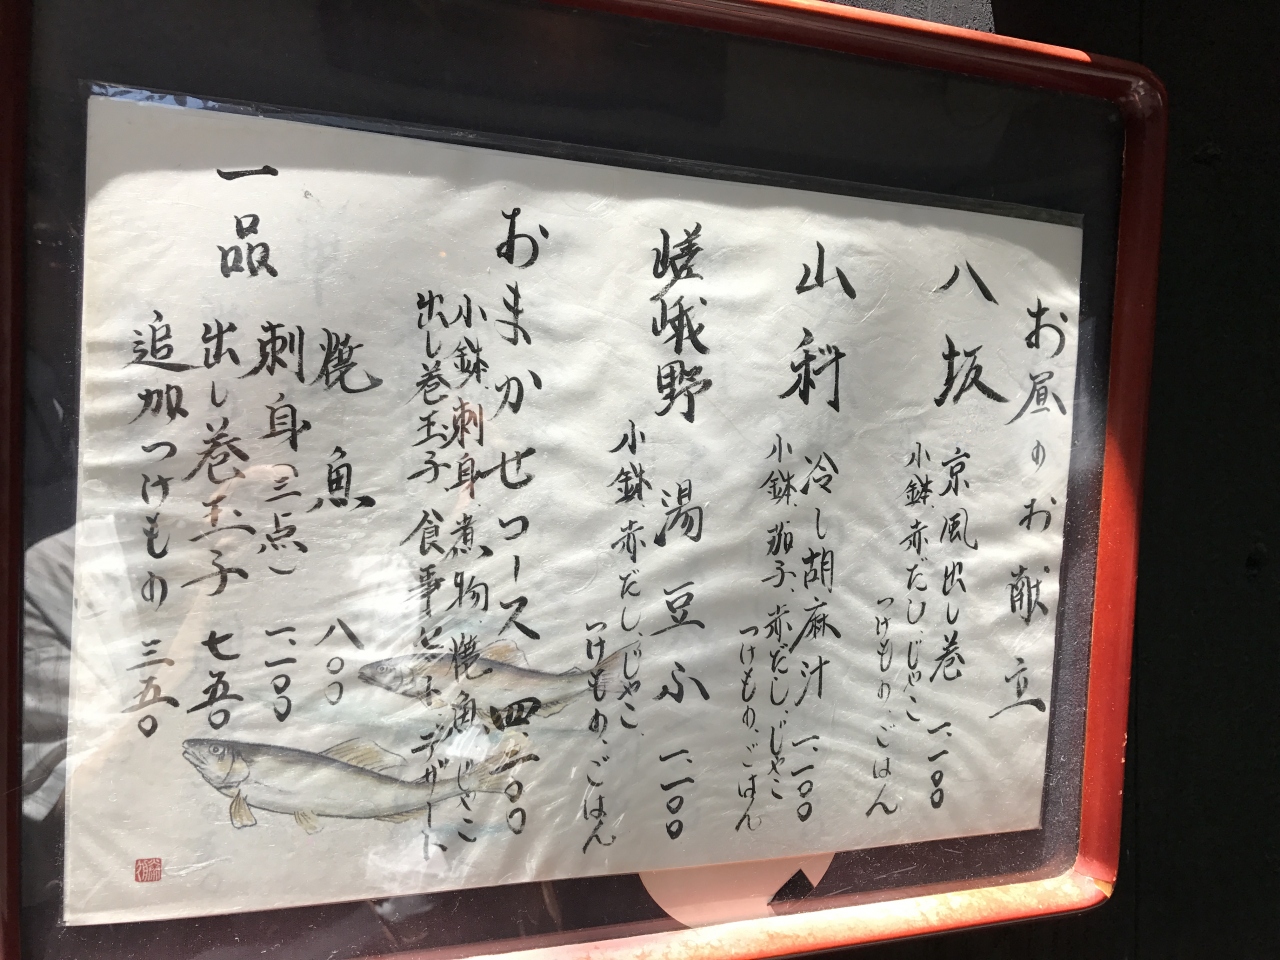 お昼のお献立
八坂 京風出し巻 一、一〇〇
小鉢、赤だし、じゃこ
つけもの、ごはん
山科 冷し胡麻汁 一、一〇〇
小鉢、茄子、赤だし、じゃこ
つけもの、ごはん
嵯峨野 湯豆ふ 一、一〇〇
小鉢、赤だし、じゃこ、
つけもの、ごはん
おまかせコース 四、二〇〇
小鉢、刺身、煮物、焼魚、じゃこ
出し巻玉子、食事、デザート
一品
焼魚 八〇〇
刺身(三点) 一、二〇〇
出し巻玉子 七五〇
追加つけもの 三五〇